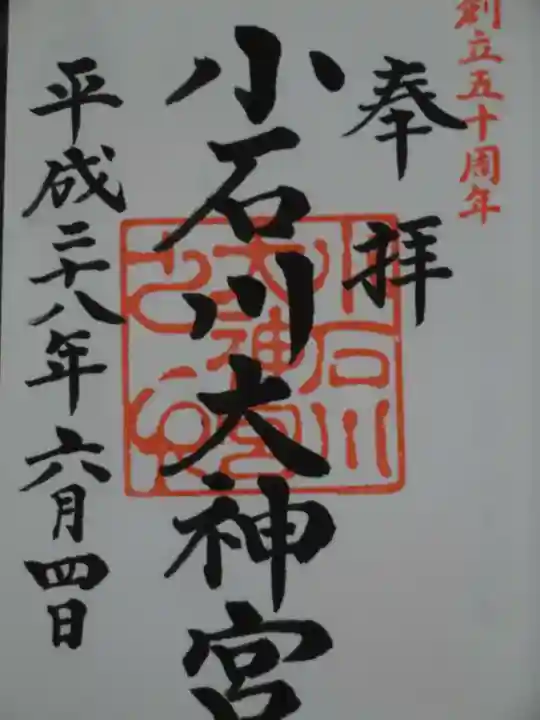 創立五十周年
奉拝
小石川大神宮
平成二十八年六月四日
小石川
大神宮